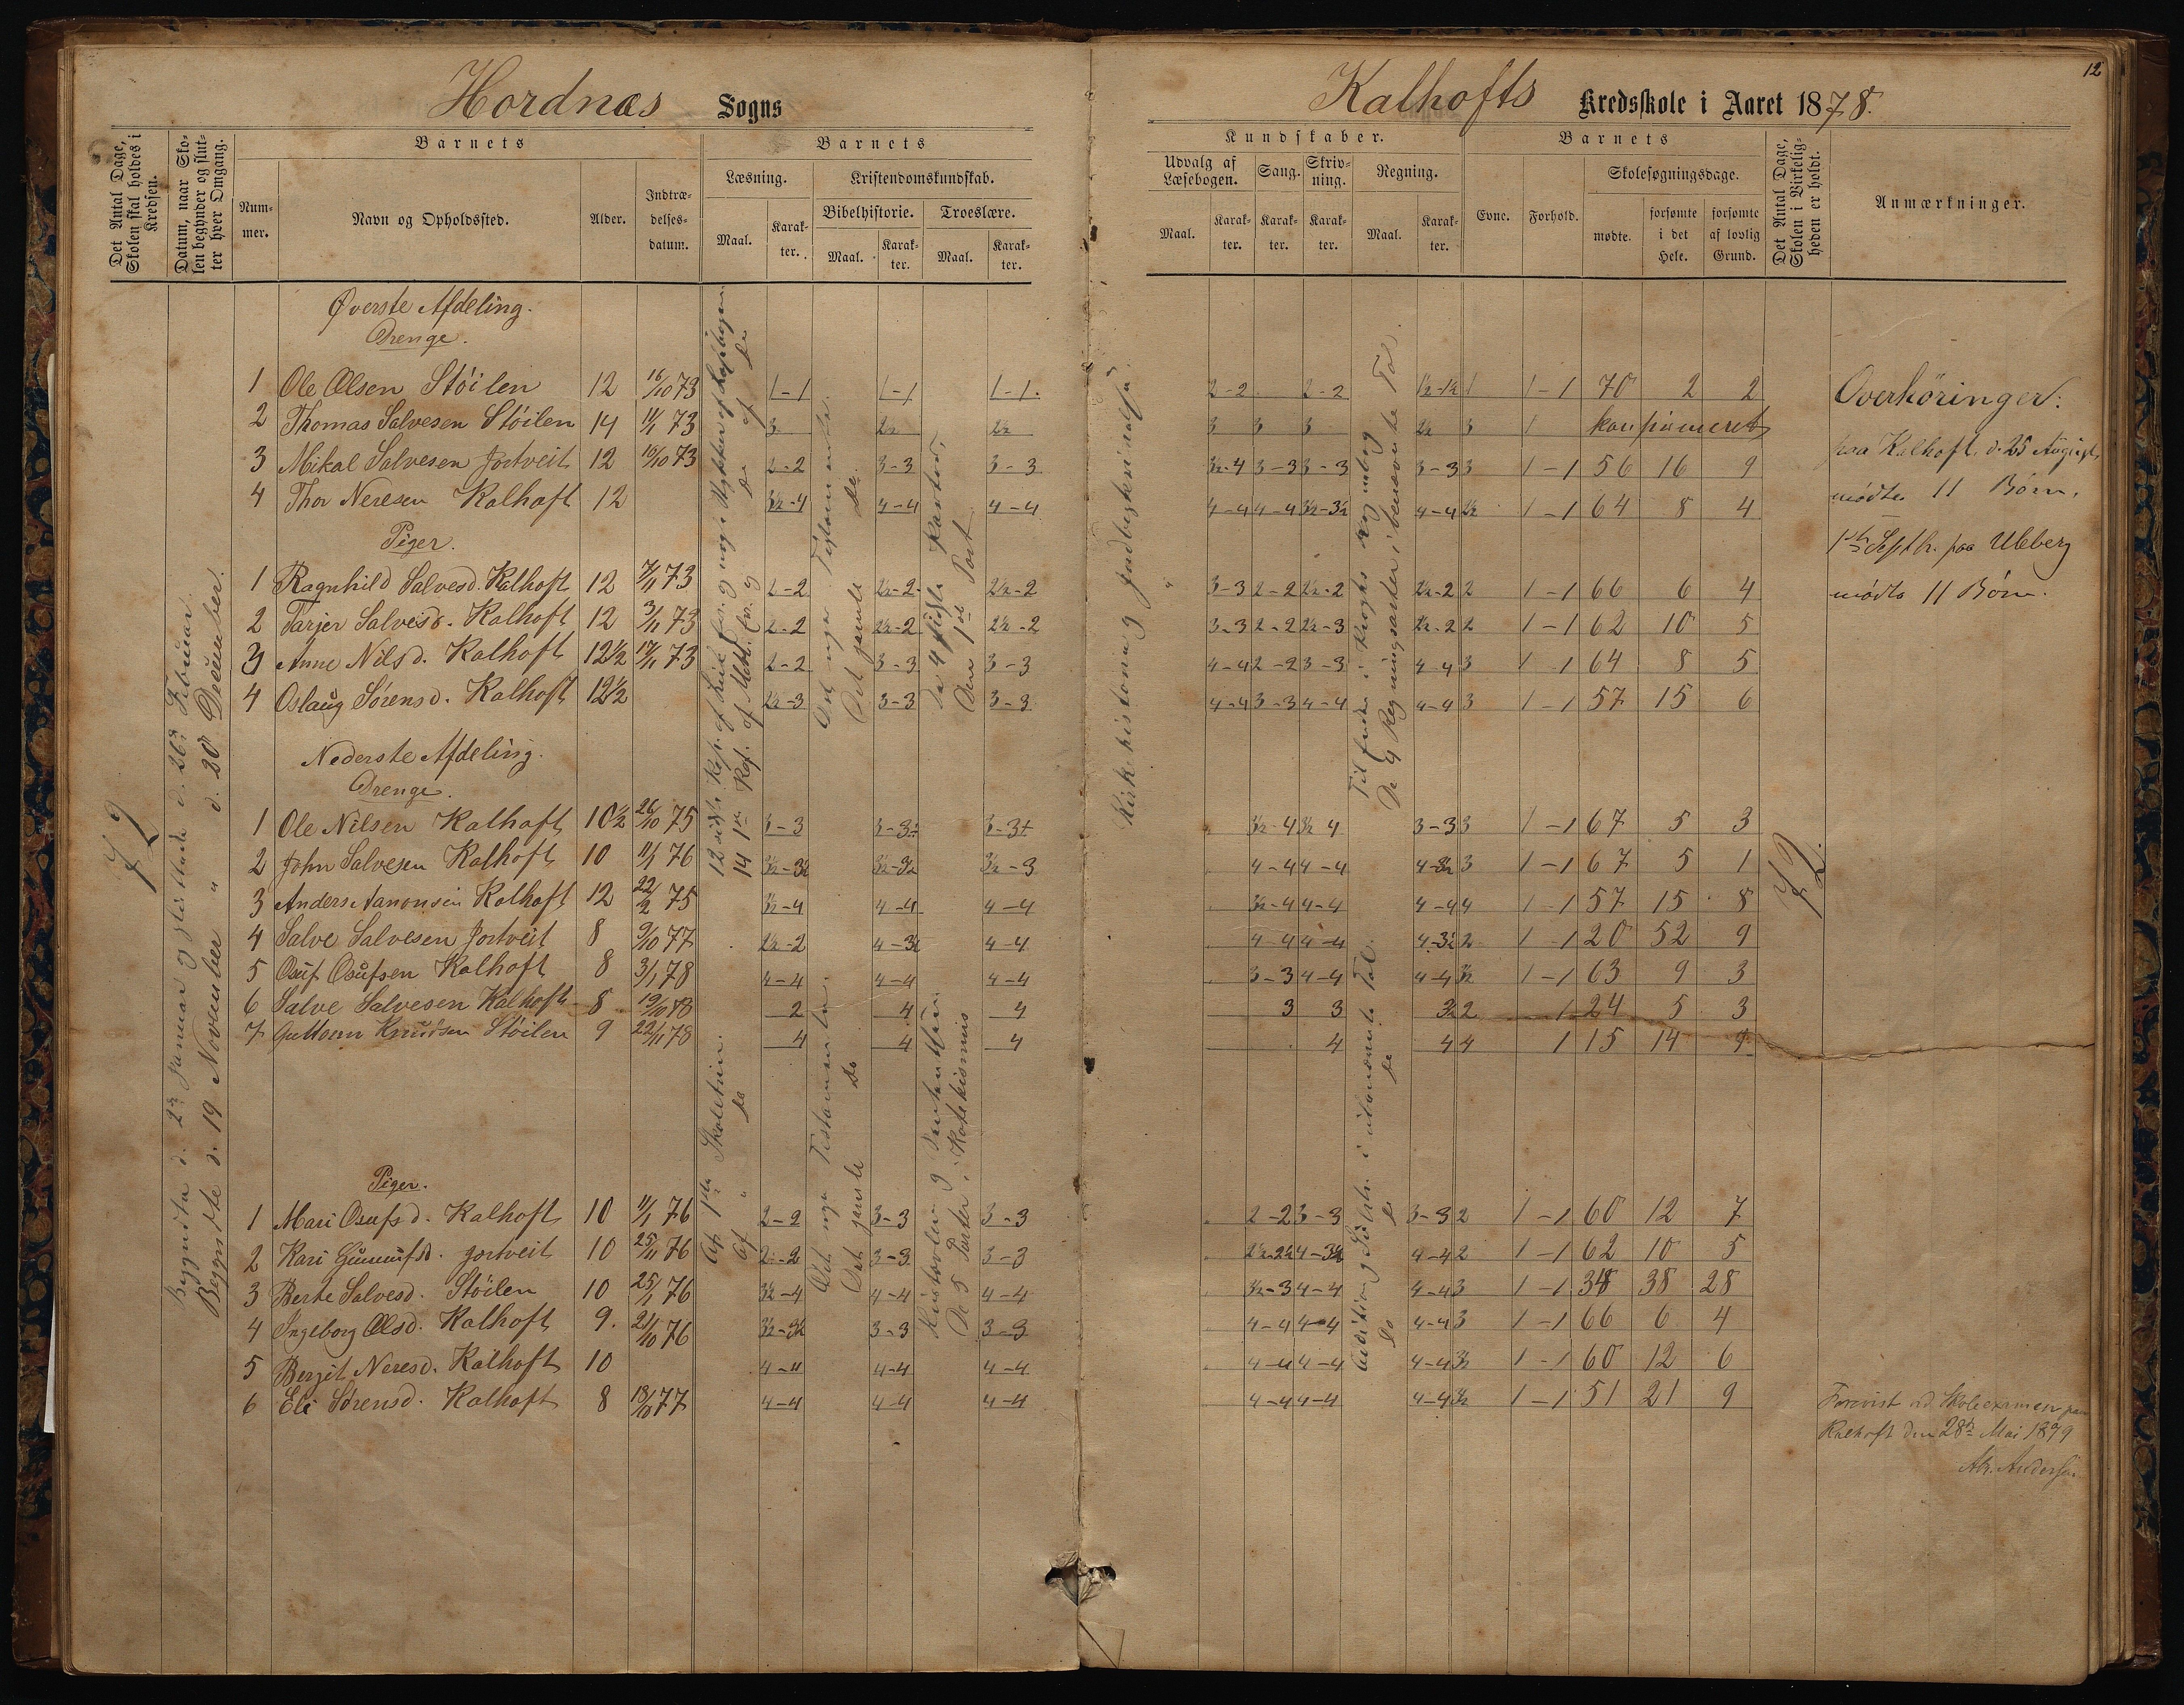 Hordnæs Sogns
Det Antal Dage, Skolen skal holdes i Kredsen.
Datum, naar Skolen begynder og slutter hver Omgang.
Barnets
Barnets
Nummer.
Navn og Opholdssted.
Alder.
Indtrædelsesdatum.
Læsning.
Kristendomskundskab.
Maal.
Karakter.
Bibelhistorie.
Troeslære.
Maal.
Karakter.
Maal.
Karakter.
72
Begyndte d. 2den Januar og sluttede d. 26de Februar.
Begyndte d. 19 November " d. 20 December.
Øverste Afdeling.
Drenge.
1 Ole Olsen Støilen 12 16/10 73 1-1 1-1 1-1.
2 Thomas Salvesen Støilen 14 11/1 73 3 2½ 2½
3 Mikal Salvesen Jortveit 12 16/10 73 2-2 3-3 3-3
4 Thor Neresen Kalhoft 12 3½-4 4-4 4-4
Piger.
1 Ragnhild Salvesd. Kalhoft 12 7/11 73 2-2 2½-2 2½-2
2 Tarjer Salvesd. Kalhoft 12 3/11 73 2-2 2½-2 2½-2
3 Anne Nilsd. Kalhoft 12½ 17/11 73 2-2 3-3 3-3
4 Oslaug Sørensd. Kalhoft 12½ 2½-3 3-3 3-3
Nederste Afdeling.
Drenge.
1 Ole Nilsen Kalhoft 10½ 26/10 75 3-3 3-3½ 3-3½
2 John Salvesen Kalhoft 10 11/1 76 3½-3½ 3½-3½ 3½-3
3 Anders Aanonsen Kalhoft 12 22/2 75 3½-4 4-4 4-4
4 Salve Salvesen Jortveit 8 9/10 77 2½-2 4-3½ 4-4
5 Osuf Osufsen Kalhoft 8 3/1 78 4-4 4-4 4-4
6 Salve Salvesen Kalhoft 8 19/10 78 2 4 4
7 Guttorm Knudsen Støilen 9 22/11 78 4 4 4
Piger.
1 Mari Osufsd. Kalhoft 10 11/1 76 2-2 3-3 3-3
2 Kari Gunnufsd. Jortveit 10 25/11 76 2-2 3-3 3-3
3 Berte Salvesd. Støilen 10 25/1 76 3½-4 4-4 4-4
4 Ingeborg Olsd. Kalhoft 9. 21/10 76 3½-3½ 3-3 3-3
5 Berjit Neresd. Kalhoft 10 4-4 4-4 4-4
6 Eli Sørensd. Kalhoft 8 18/10 77 4-4 4-4 4-4
Det nye Testamente.
Det gamle do
De 4 sidste Parter,
Den 1ste Part
Af 1ste Skoletrin.
Af " do
Det nye Testamente.
Det gamle do
De 5 Parter i Katekismus
Kalhofts Kredsskole i Aaret 1878.
12
Kundskaber.
Barnets
Udvalg af Læsebogen.
Sang.
Skrivning.
Regning.
Evne.
Forhold.
Skolesøgningsdage.
Maal.
Karakter.
Karakter.
Karakter.
Maal.
Karakter.
mødte.
forsømte i det Hele.
forsømte af lovlig Grund.
Det Antal Dage, Skolen i Virkeligheden er holdt.
Anmærkninger.
Kirkehistorie og Jordbeskrivelse
De 4 Regningsarter i benævnte Tal.
72.
2-2 2-2 1½-1½ 1 1-1 70 2 2
3 3 3 2½ 3 1 konfirmeret
3½-4 3-3 3-3 3-3 3 1-1 56 16 9
4-4 4-4 3½-3½ 4-4 2½ 1-1 64 8 4
3-3 2-2 2½-2 2½-2 2 1-1 66 6 4
3-3 2-2 2½-3 2½-2 2 1-1 62 10 5
4-4 2-2 3-3 4-4 3 1-1 64 8 5
4-4 3-3 4-4 4-4 3 1-1 57 15 6
3½-4 3½ 4 3-3 3 1-1 67 5 3
4-4 4-4 4-3½ 3 1-1 67 5 1
3½-4 4-4 4-4 4 1-1 57 15 8
4-4 4-4 4-3½ 2 1-1 20 52 9
3-3 4-4 4-4 3½ 1-1 63 9 3
3 3 3½ 2 1 24 5 3
4 4 4 1 15 14 9
2-2 3-3 3-3 2 1-1 60 12 7
2½-2½ 4-3½ 4-4 2 1-1 62 10 5
3½-3 4-4 4-4 3 1-1 34 38 28
4-4 4-4 4-4 3 1-1 66 6 4
4-4 4-4 4-4 3½ 1-1 60 12 6
4-4 4-4 4-4 3½ 1-1 51 21 9
Overhöringer:
paa Kalhoft, d. 25 August,
mødte 11 Børn.
1ste Septbr. paa Ubberg
mødte 11 Børn.
Forevist ved Skoleexamen paa
Kalhoft den 28de Mai 1879
Andersen